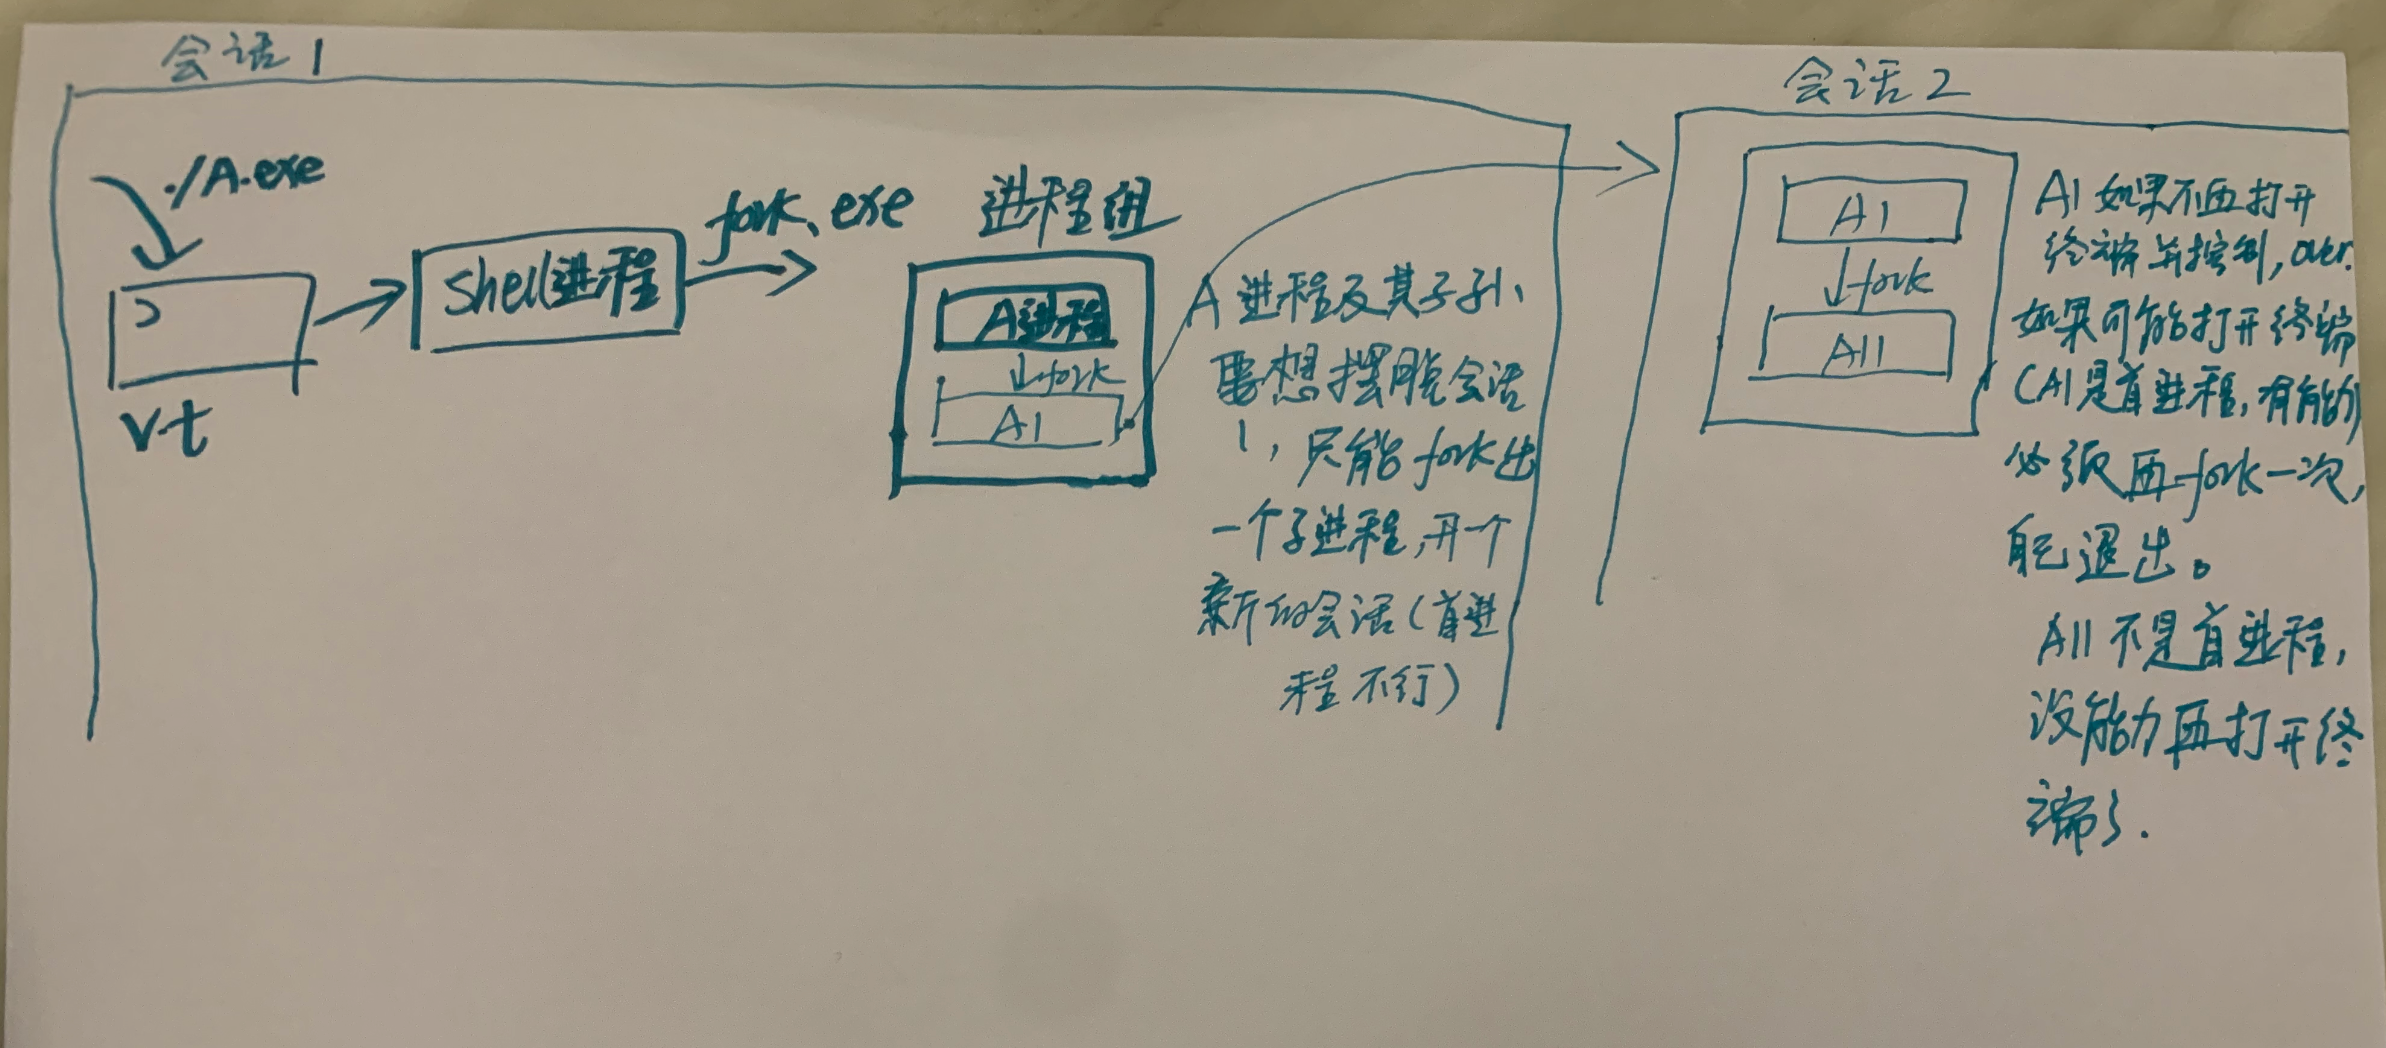 会话1
./A.exe
>
v.t
shell进程
fork、exe
进程组
A进程
fork
A1
A进程及其子孙、
要想摆脱会话
1,只能fork出
一个子进程,开一个
新的会话(首进
程不行)
会话2
A1
fork
A11
A1如果不再打开
终端并控制,over.
如果可能打开终端
(A1是首进程,有能力)
必须再fork一次,
自己退出。
A11不是首进程,
没能力再打开终
端了.